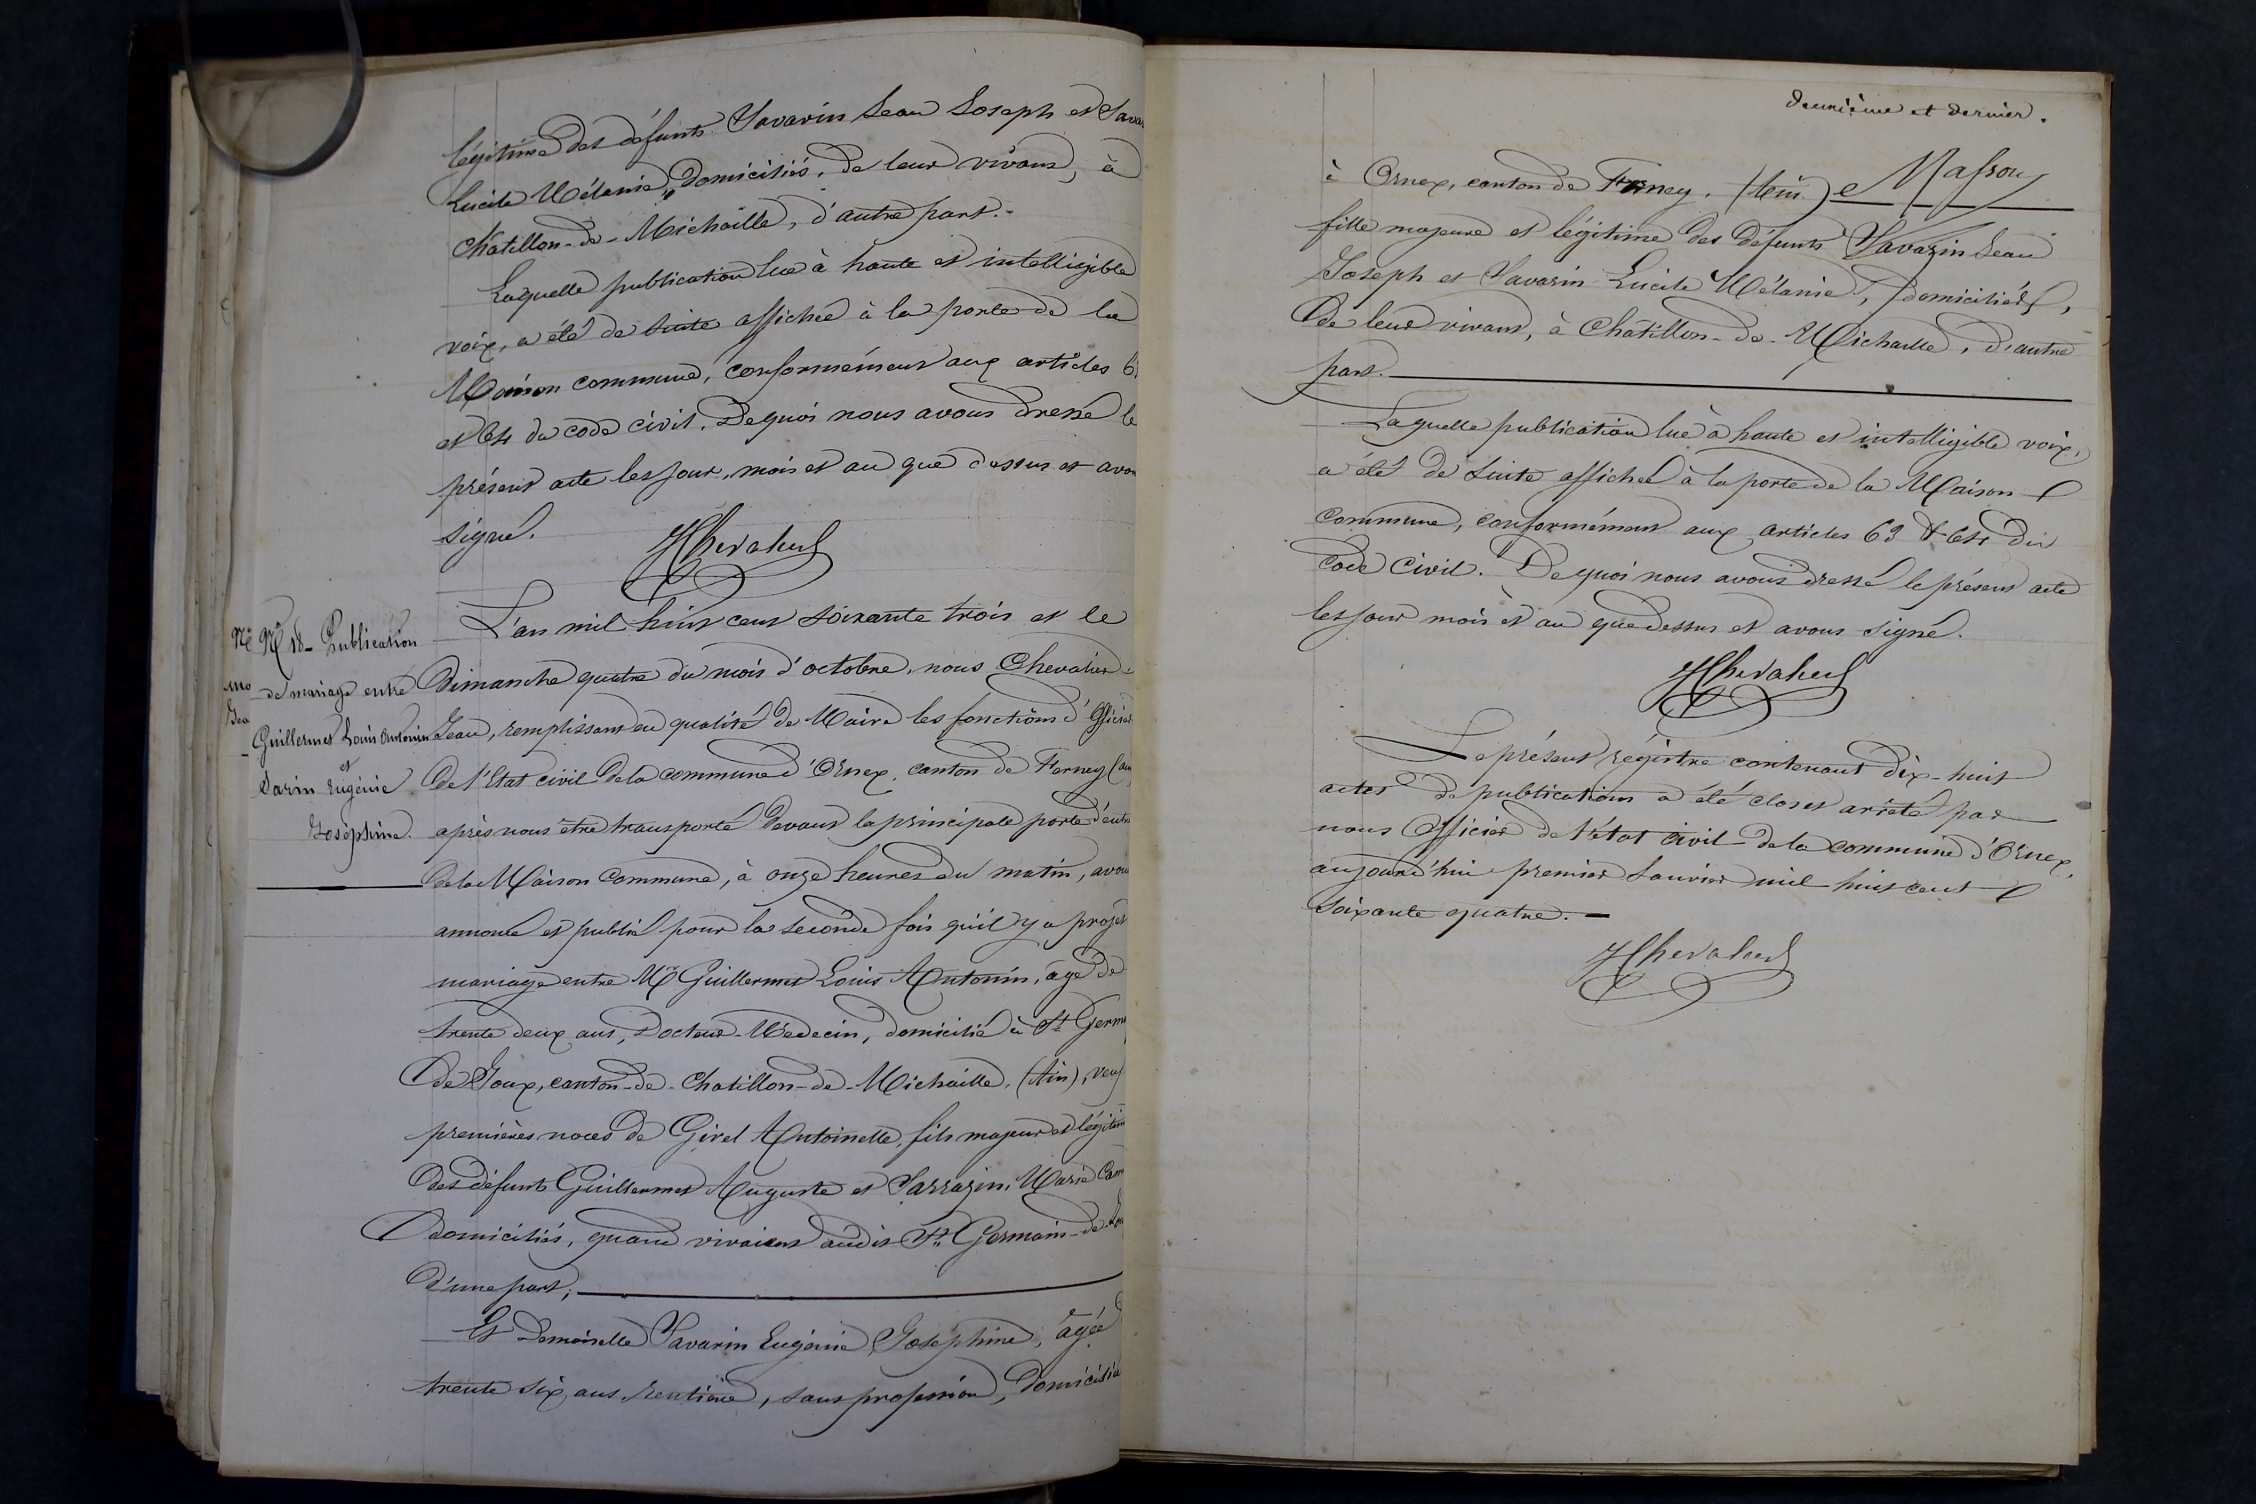 légitime des défunts Savarin Jean Joseph et Sava
Lucile Mélanie, domiciliés, de leur vivant, à
Châtillon-de-Michaille, d'autre part.-
Laquelle publication lue à haute et intelligible
voix, a été de suite affichée à la porte de la
Maison commune, conformément aux articles 6
et 64 du code civil. De quoi nous avons dressé le
présent acte les jour, mois et an que dessus et avon
signé.
JChevalier
No 18 - Publication
de mariage entre
Guillermet Louis Antonin
et
Savarin Eugénie
Joséphine.
L'an mil huit cent soixante trois et le
Dimanche quatre du mois d'octobre, nous Chevalier
Jean, remplissant en qualité de Maire les fonctions d'Officier
de l'Etat civil de la commune d'Ornex, canton de Ferney (ain
après nous être transporté devant la principale porte d'entr
de la Maison Commune, à onze heures du matin, avon
annoncé et publié pour la seconde fois qu'il y a projet
mariage entre Mr Guillermet Louis Antonin, âgé de
trente deux ans, Docteur-Médecin, domicilié à St Germ
de Joux, canton-de-Chatillon-de-Michaille, (Ain), veuf
premières noces de Girel Antoinette, fils majeur et légitim
des défunts Guillermet Auguste et Sarrazin, Marie
domiciliés, quand vivaient audit St Germain-de-Jou
d'une part;
Et Demoiselle Savarin Eugénie Joséphine, âgée
trente six ans rentière, sans profession, domicilié
deuxième et dernier.
à Ornex, canton de Ferney. (Ain) Masson
fille majeure et légitime des défunts Savarin Jean
Joseph et Savarin Lucile Mélanie, domiciliés,
de leur vivant, à Châtillon-de-Michaille, d'autre
part.
Laquelle publication lue à haute et intelligible voix,
a été de suite affichée à la porte de la Maison
Commune, conformément aux articles 63 & 64 du
Code Civil. De quoi nous avons dressé le présent acte
les jour mois et an que dessus et avons signé.
JChevalier
Le présent régistre contenant dix-huit
actes de publications a été clos et arrêté par
nous Officier de l'état civil de la commune d'Ornex,
aujourd'hui premier Janvier mil huit cent
soixante quatre.-
JChevalier